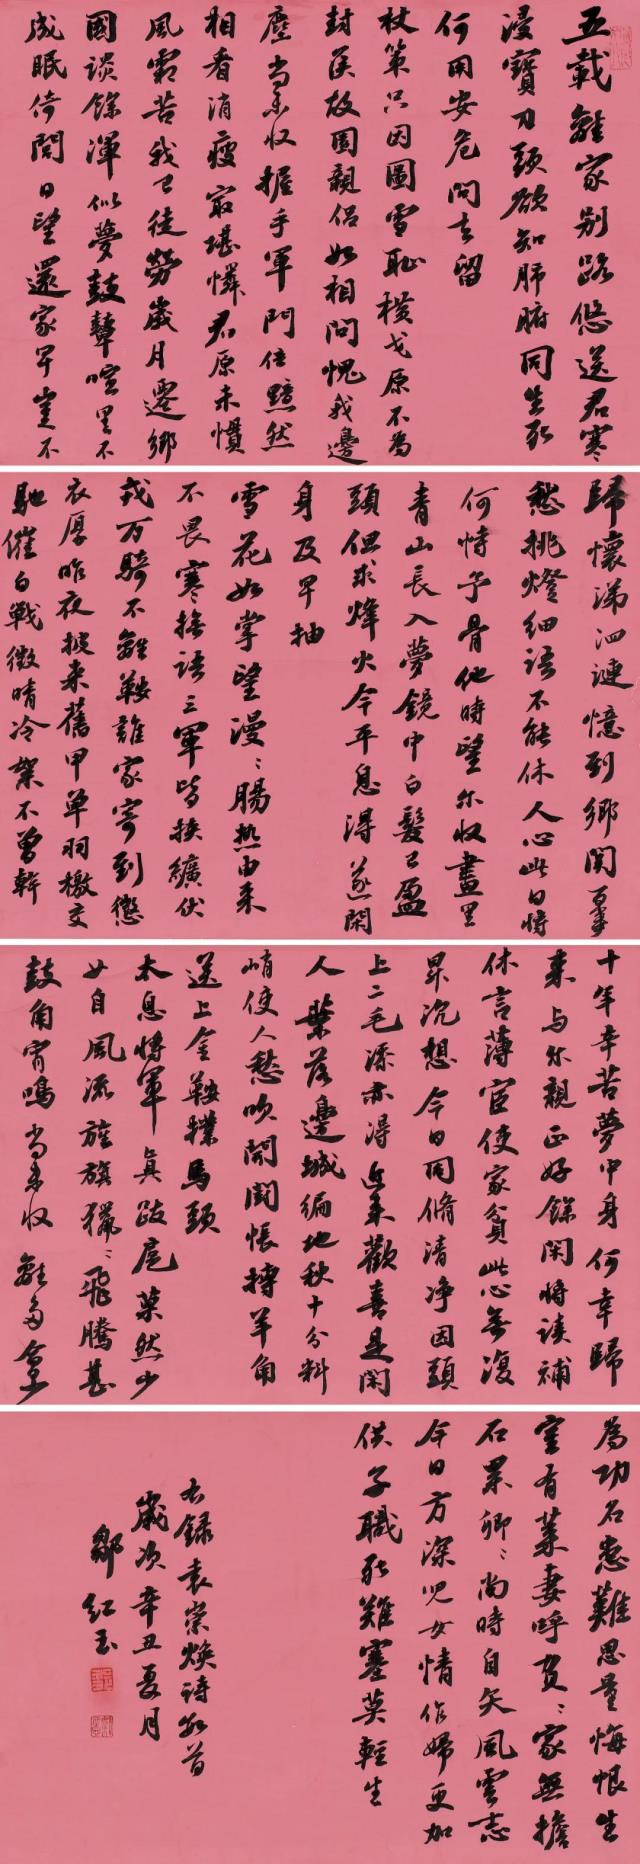 五载離家别路悠送君寒
浸寶刀頭欲知肺腑同生死
何用安危問去留
杖策只因圖雪恥横戈原不為
封侯故園親侣如相問愧我邊
塵尚未收握手軍門住黯然
相看消瘦寂堪憐君原未慣
風霜苦我已徒勞歲月遷鄉
國談餘渾似夢鼓鼙喧裏不
成眠倚閭日望還家早豈不
歸懷涕泗漣憶到鄉関事事
愁挑燈细語不能休人心此日將
何恃予骨他時望尔收畫里
青山長入夢鏡中白髮已盈
頭但求烽火今平息得遂閑
身及早抽
雪花如掌望漫漫腸热由来
不畏寒接語三軍皆挟纊伏
戎万騎不離鞍誰家寄到懲
衣厚昨夜披来舊甲單羽檄交
馳催白戰徵睛冷絮不曾乾
十年辛苦夢中身何幸歸
来与尔親正好餘閑將读補
休言薄宦使家貧此心無復
昇沉想今日同脩清净因頭
上二毛添亦得近来歡喜是閑
人 葉落邊城徧地秋十分料
峭使人愁吹開鬪帳摶羊角
送上金鞍撲馬頭
太息將軍真跋扈菓然少
女自風流旌旗獵獵飛騰甚
鼓角宵鳴尚未收 離多會少
為功名患難思量悔恨生
室有萊妻呼負負家無擔
石累卿卿當時自矢風雲志
今日方深兒女情作婦更加
供子職死難塞莫輕生
右録袁崇焕詩数首
歲次辛丑夏月
鄒紅玉